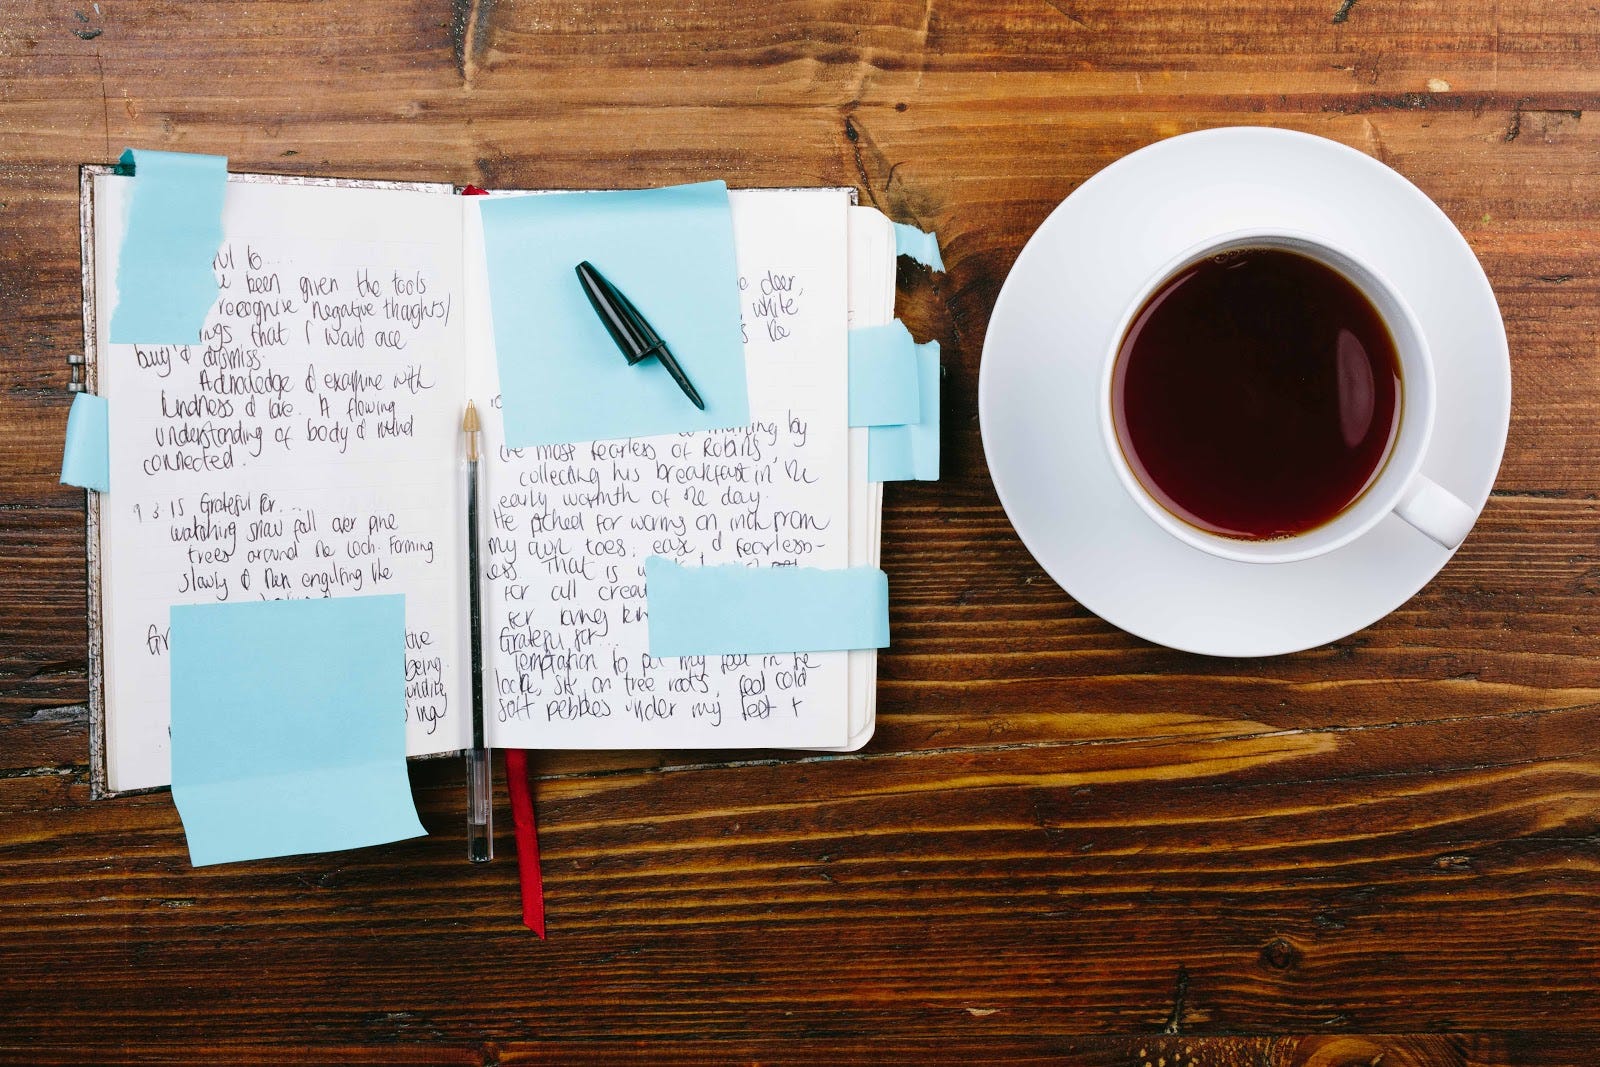 to....
been given the tools
recognise negative thoughts/
that I would
bury & dismiss.
Acknowledge & examine with
kindness & love. A flowing
understanding of body & mind
connected.
9 3 15 Grateful for...
watching snow fall over pine
trees around the Loch. Forming
slowly & then engulfing the
being.
deer,
white
the
by
the most fearless of Robins,
collecting his breakfast in the
early warmth of the day.
He pecked for worms an inch from
my own toes. ease & fearless-
ess. That is
for all
for loving
Grateful for...
Temptation to put my foot in the
loche, sit on tree roots, feel cold
soft pebbles under my feet +